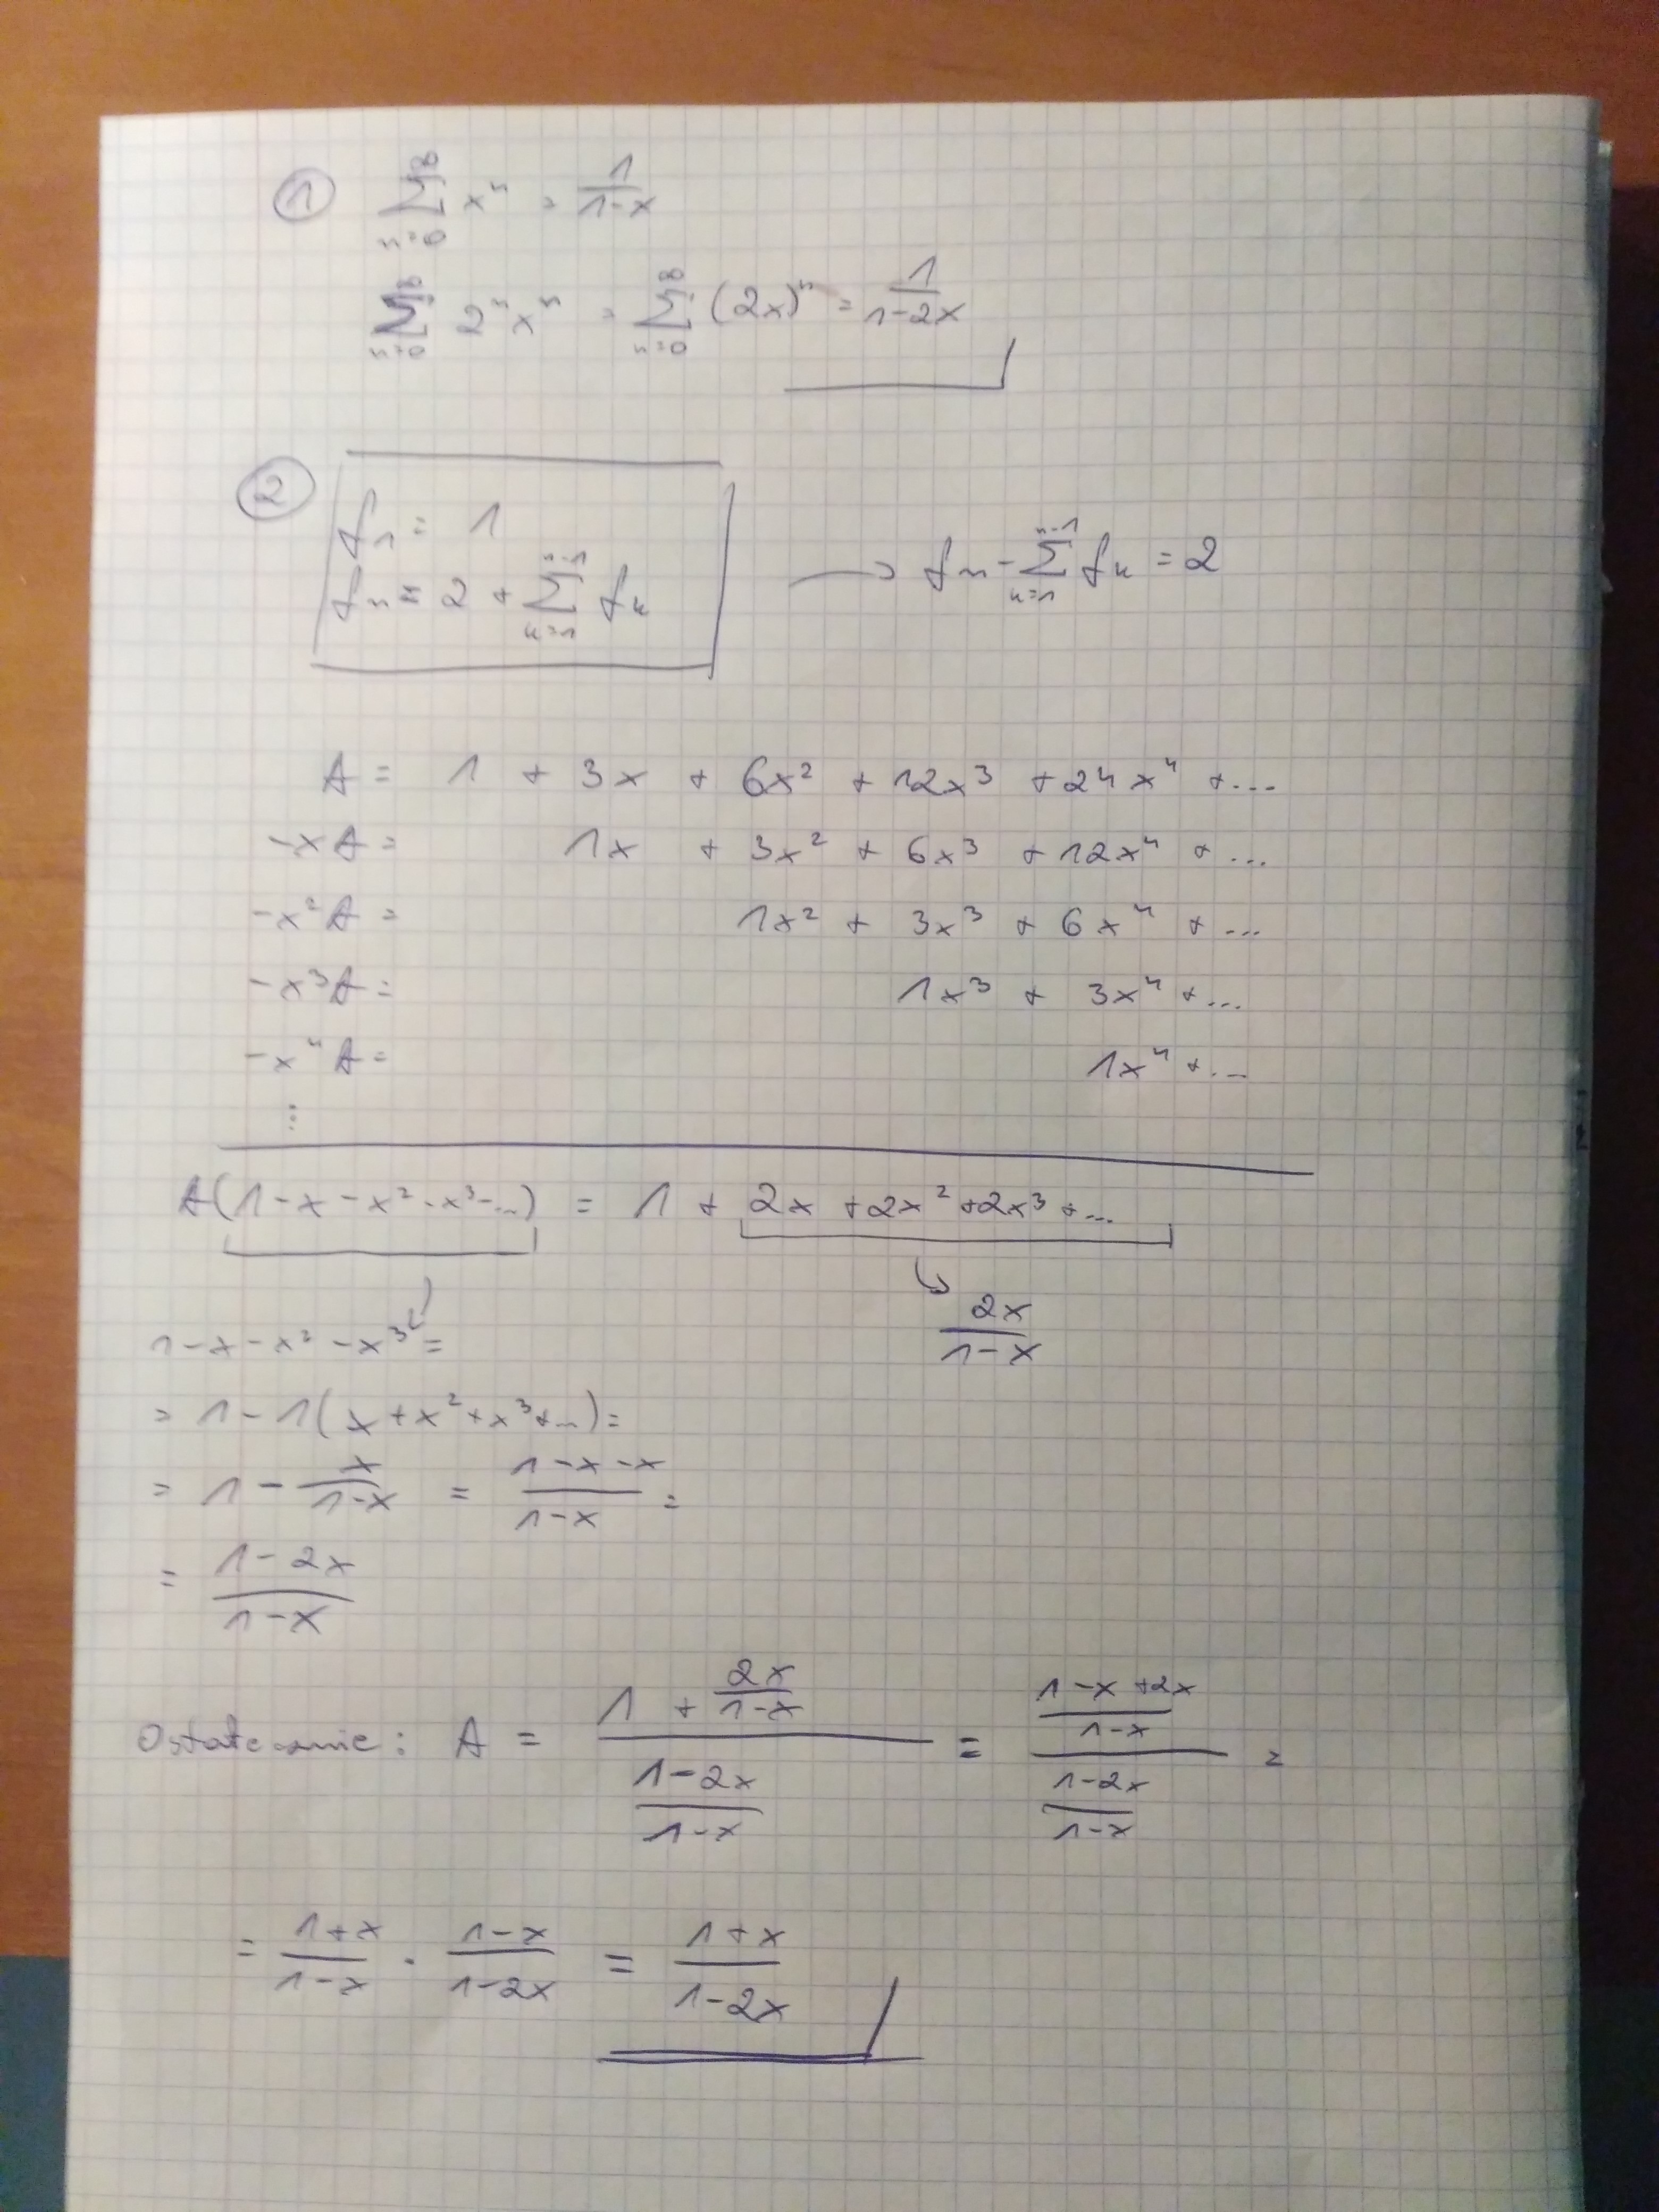 ① ∑_{n=0}^{∞} x^n = 1/(1-x)
∑_{n=0}^{∞} 2^n x^n = ∑_{n=0}^{∞} (2x)^n = 1/(1-2x)
② f_1 = 1
f_n = 2 + ∑_{k=1}^{n-1} f_k → f_n - ∑_{k=1}^{n-1} f_k = 2
A = 1 + 3x + 6x² + 12x³ + 24x⁴ + ...
-xA = 1x + 3x² + 6x³ + 12x⁴ + ...
-x²A = 1x² + 3x³ + 6x⁴ + ...
-x³A = 1x³ + 3x⁴ + ...
-x⁴A = 1x⁴ + ...
...
A(1-x-x²-x³-...) = 1 + 2x + 2x² + 2x³ + ...
2x/(1-x)
1-x-x²-x³ =
= 1-1(x+x²+x³+...) =
= 1 - x/(1-x) = (1-x-x)/(1-x) =
= (1-2x)/(1-x)
Ostatecznie: A = (1 + 2x/(1-x))/((1-2x)/(1-x)) = ((1-x+2x)/(1-x))/((1-2x)/(1-x)) =
= (1+x)/(1-x) · (1-x)/(1-2x) = (1+x)/(1-2x)